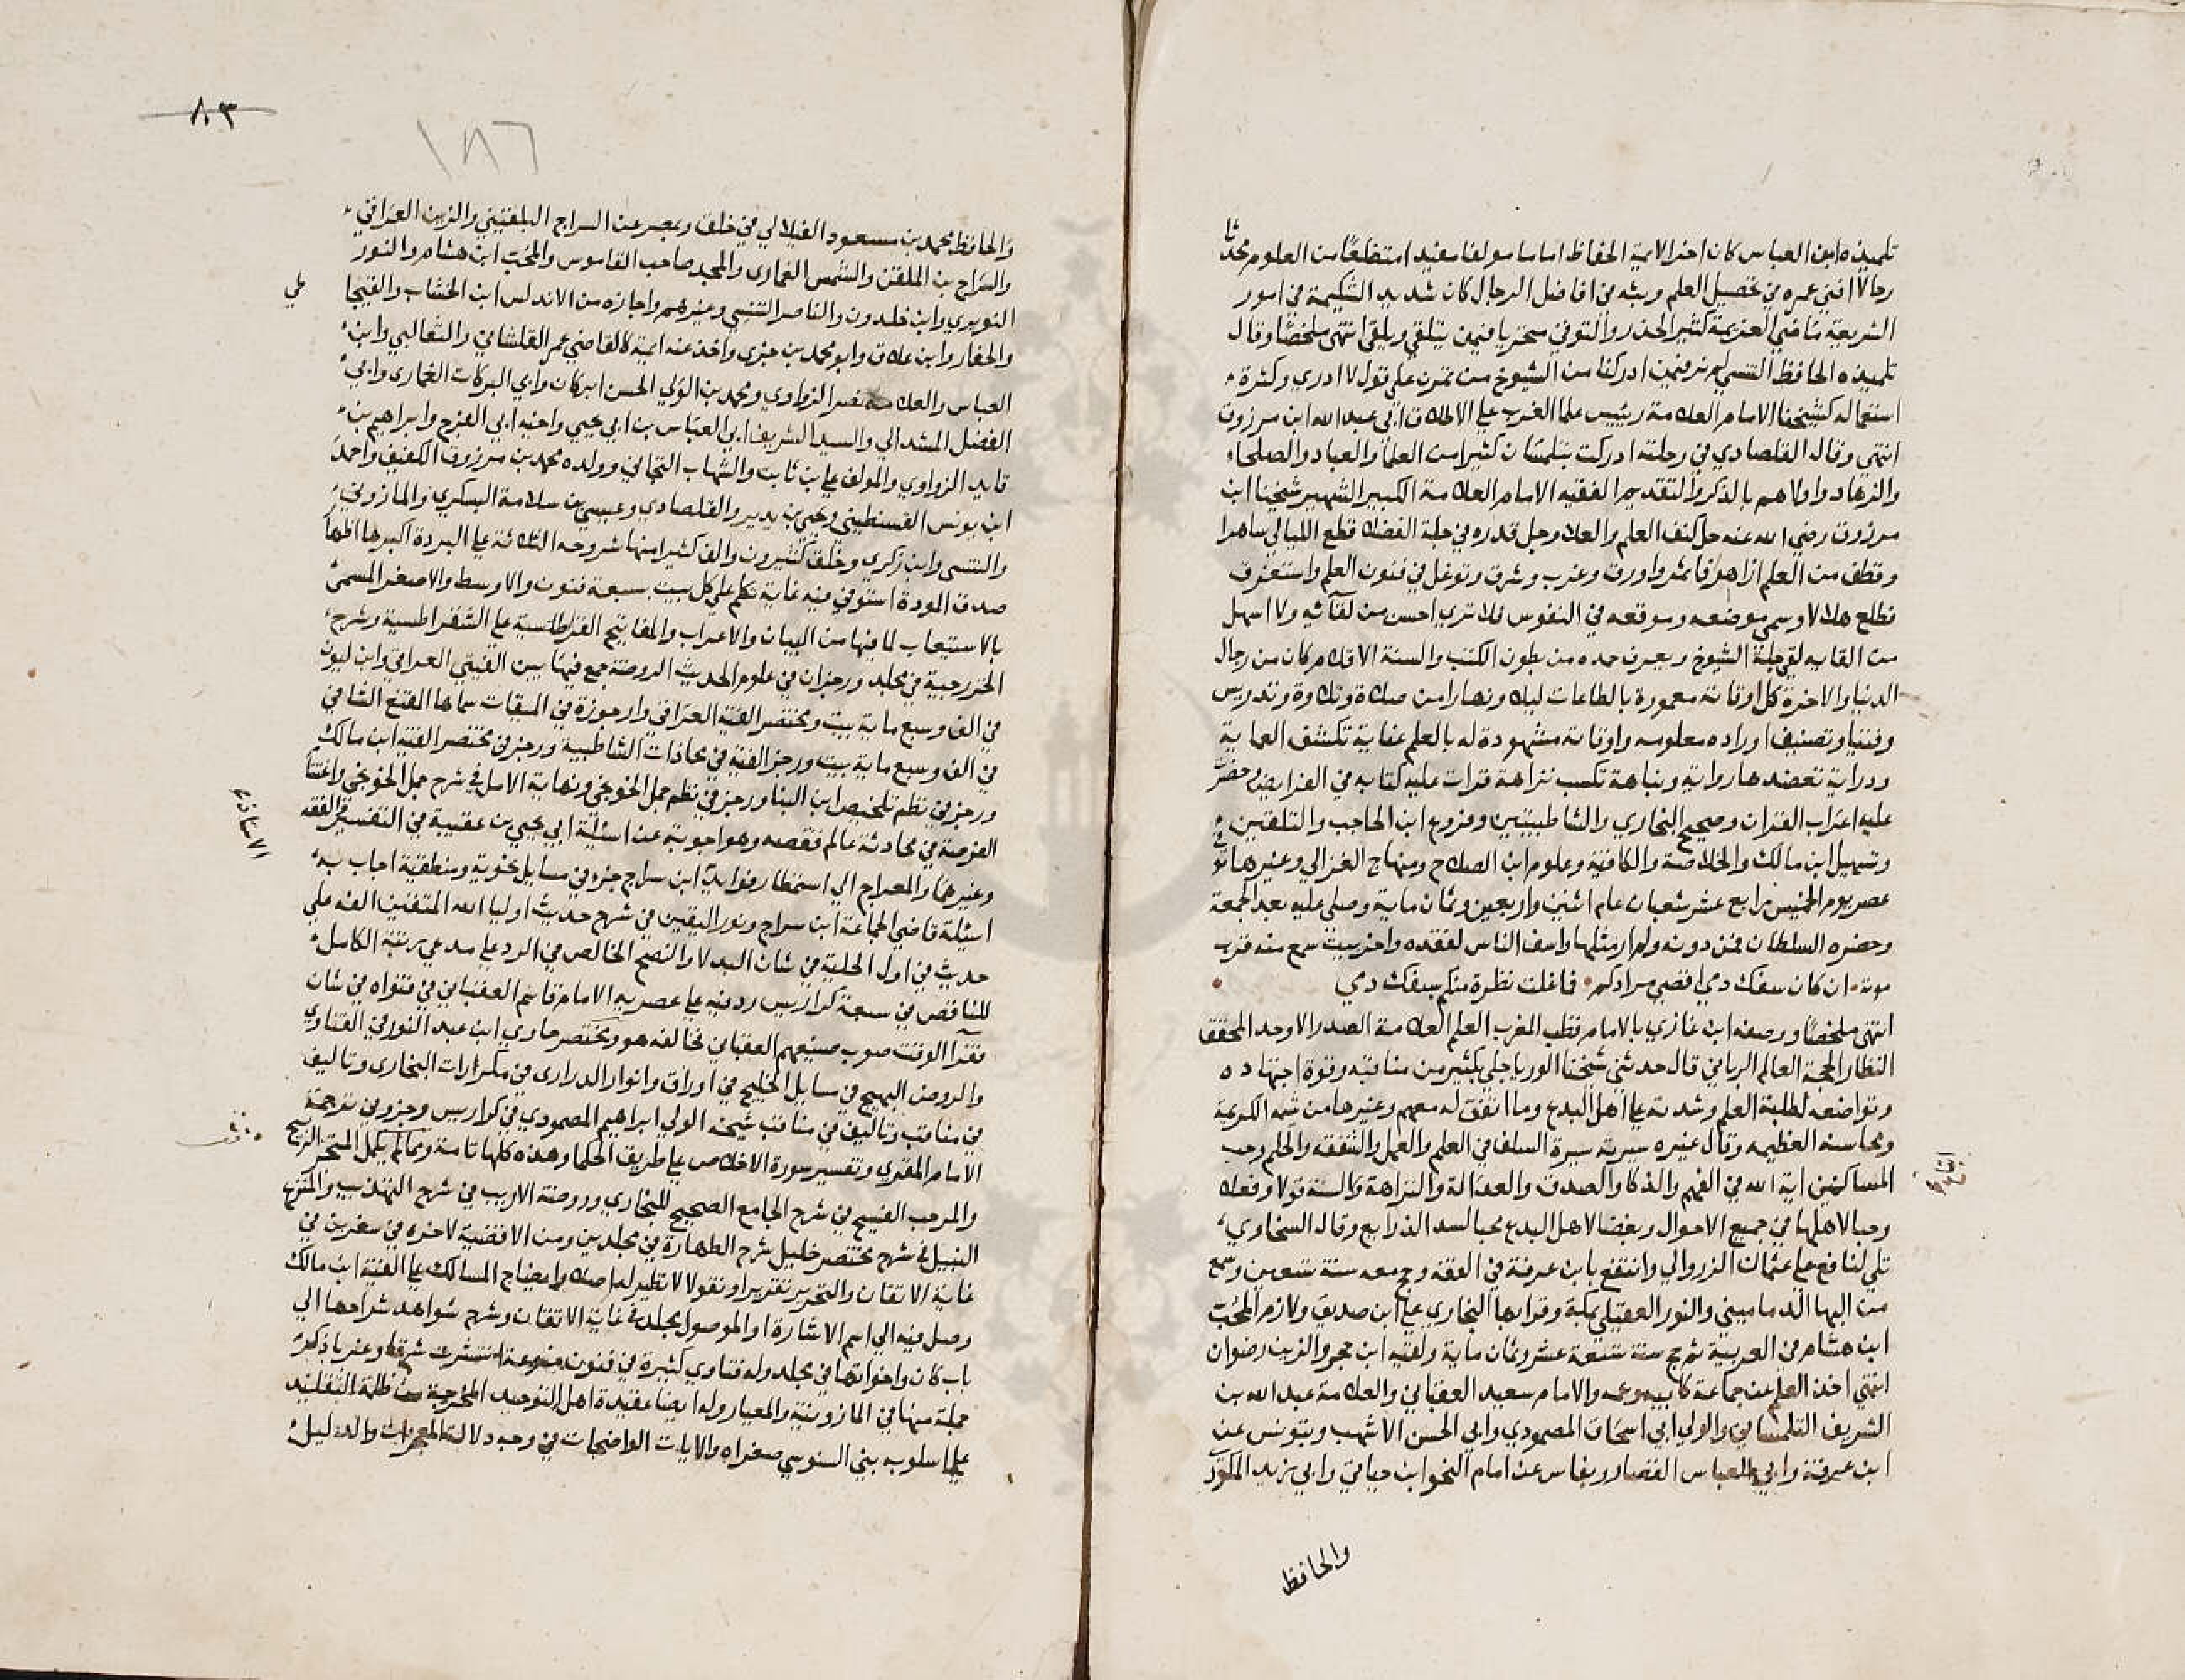 تلميذه ابن العباس كان اخر الايمة الحفاظ اماما مولفا مفيدا متضلعا من العلوم محدثا
رحالا افنى عمره في تحصيل العلم وبثه في افاضل الرجال كان شديد الشكيمة في امور
الشريعة ماضي العزيمة كثير الحذر والتوفي متحريا فيمن يتلقى ويلقى انتهى ملخصا وقال
تلميذه الحافظ التنسي لم نر فيمن ادركنا من الشيوخ من تمرن على قول لا ادري وكثرة
استعماله كشيخنا الامام العلامة رئيس علما الغرب على الاطلاق ابي عبد الله ابن مرزوق
انتهى وقال القلصادي في رحلته ادركت بتلمسان كثيرا من العلما والعباد والصلحاء
والزهاد واولاهم بالذكر والتقديم الفقيه الامام العلامة الكبير الشهير شيخنا ابن
مرزوق رضي الله عنه حل كنف العلم والعلا وجل قدره في جلة الفضلا قطع الليالي ساهرا
وقطف من العلم ازاهرا فاثمر واورق وغرب وشرق وتوغل في فنون العلم واستغرق
فطلع هلالا وسمى موضعه وموقعه في النفوس فلا ترى احسن من لقائه ولا اسهل
من القايه لقي جلة الشيوخ ويعرف حده من بطون الكتب والسنة الاقلام كان من رجال
الدنيا والاخرة كل اوقاته معمورة بالطاعات ليلا ونهارا من صلاة وتلاوة وتدريس
وفتيا وتصنيف اوراده معلومه واوقاته مشهودة له بالعلم عناية تكشف العماية
ودراية تعضدها رواية ونباهة تكسب نزاهة قرات عليه كتابه في الفرايض وحضرت
عليه اعراب القران وصحيح البخاري والشاطبيتين وفروع ابن الحاجب والتلقين
وتسهيل ابن مالك والخلاصة والكافية وعلوم ابن الصلاح ومنهاج الغزالي وغيرها توفي
عصر يوم الخميس رابع عشر شعبان عام اثنين واربعين وثمان ماية وصلي عليه بعد الجمعة
وحضره السلطان فمن دونه ولم ار مثلها واسف الناس لفقده واخر بيت سمع منه قرب
موته ان كان سفك دمي اقصى مرادكم فاغلت نظرة منكم بسفك دمي
انتهى ملخصا ووصفه ابن غازي بالامام قطب المغرب العلم العلامة الصدر الاوحد المحقق
النظار الحجة العالم الرباني قال حدثني شيخنا الورياجلي بكثير من مناقبه وقوة اجتهاده
وتواضعه لطلبة العلم وشدته على اهل البدع وما اتفق له معهم وغيرها من شيمه الكريمة
ومحاسنه العظيمه وقال غيره سيرته سيرة السلف في العلم والعمل والشفقة والحلم وحب
المساكين اية الله في الفهم والذكا والصدق والعدالة والنزاهة والسنة قولا وفعلا
وحبا لاهلها في جميع الاحوال وبغضا لاهل البدع محبا لسد الذرايع وقال السخاوي
تلي لنافع على عثمان الزروالي وانتفع بابن عرفة في الفقه وحج معه سنة تسعين وسمع
من البها الدماميني والنور العقيلي بمكة وقرا بها البخاري على ابن صديق ولازم المحب
ابن هشام في العربية ثم حج سنة تسعة عشر وثمان ماية ولقيه ابن حجر والزين رضوان
انتهى اخذ العلم عن جماعة كابيه وعمه والامام سعيد العقباني والعلامة عبد الله بن
الشريف التلمساني والولي ابي اسحاق المصمودي وابي الحسن الاشهب وبتونس عن
ابن عرفة وابي العباس القصار وبفاس عن امام النحو ابن حياتي وابي زيد المكودي
والحافظ
٨٣
١٨٦
والحافظ محمد بن مسعود الفيلالي في خلق وبمصر عن السراج البلقيني والزين العراقي
والسراج بن الملقن والشمس الغماري والمجد صاحب القاموس والمحب ابن هشام والنور
النويري وابن خلدون والناصر التنسي وغيرهم واجازه من الاندلس ابن الخشاب والقيجا
طي
والحفار وابن علاق وابو محمد بن جزي واخذ عنه ايمة كالقاضي عمر القلشاني والثعالبي وابن
العباس والعلامة نصر الزواوي ومحمد بن الولي الحسن ابركان وابي البركات الغماري وابي
الفضل المشدالي والسيد الشريف ابي العباس بن ابي يحيي واخيه ابي الفرج وابراهيم بن
قايد الزواوي والمولف على بن ثابت والشهاب التجاني وولده محمد بن مرزوق الكفيف واحمد
ابن يونس القسنطيني ويحيى بن يدير والقلصادي وعيسى بن سلامة البسكري والمازوني
والتنسي وابن زكري وخلق كثيرون والف كثيرا منها شروحه الثلاثة على البردة اكبرها اظهار
صدق المودة استوفى فيه غاية تكلم على كل بيت بسبعة فنون والاوسط والاصغر المسمى
بالاستيعاب لما فيها من البيان والاعراب والمفاتيح القرطاسية على الشقراطسية وشرح
الخزرجية في مجلد ورجزان في علوم الحديث الروضة جمع فيها بين الفيتي العراقي وابن ليون
في الف وسبع ماية بيت ومختصر الفية العراقي وارجوزة في الميقات سماها المقنع الشافي
في الف وسبع ماية بيت ورجز الفية في محاذات الشاطبية ورجز في مختصر الفية ابن مالك
ورجز في نظم تلخيص ابن البنا ورجز في نظم جمل الخونجي ونهاية الامل في شرح جمل الخونجي واغتنا
الفرصة في محادثة عالم قفصه وهو اجوبة عن اسئلة ابي يحيي بن عقيبة في التفسير والفقه
وغيرهما والمعراج الى استمطار فوايد الاستاذ ابن سراج جزء في مسايل نحوية ومنطقية اجاب به
اسئلة قاضي الجماعة ابن سراج ونور اليقين في شرح حديث اوليا الله المتقين الفه على
حديث في اول الحلية في شان البدلا والنصح الخالص في الرد على مدعي رتبة الكامل
للناقص في سبعة كراريس رد فيه على عصريه الامام قاسم العقباني في فتواه في شان
فقرا الوقت صوب صنيعهم العقباني فخالفه هو ومختصر حاوي ابن عبد النور في الفتاوي
والروض البهيج في مسايل الخليج في اوراق وانوار الدراري في مكررات البخاري وتاليف
في مناقب وتاليف في مناقب شيخه الولي ابراهيم المصمودي في كراريس وجزو في ترجمة
الامام المقري وتفسير سورة الاخلاص على طريق الحكما وهذه كلها تامة ومما لم يكمل المتجر الربيح
والمرحب الفسيح في شرح الجامع الصحيح للبخاري وروضة الاريب في شرح التهذيب والمنزع
النبيل في شرح مختصر خليل شرح الطهارة في مجلدين ومن الاقضية لاخره في سفرين في
غاية الاتقان والتحرير تقريرا ونقولا لا نظير له اصلا وايضاح المسالك على الفية ابن مالك
وصل فيه الى اسم الاشارة او الموصول مجلد في غاية الاتقان وشرح شواهد شراحها الى
باب كان واخواتها في مجلد وله فتاوي كثيرة في فنون متنوعة انتشرت شرقا وغربا ذكر
جملة منها في المازونية والمعيار وله ايضا عقيدة اهل التوحيد المخرجة من ظلمة التقليد
على اسلوبه بنى السنوسي صغراه والايات الواضحات في وجه دلالة المعجزات والدليل